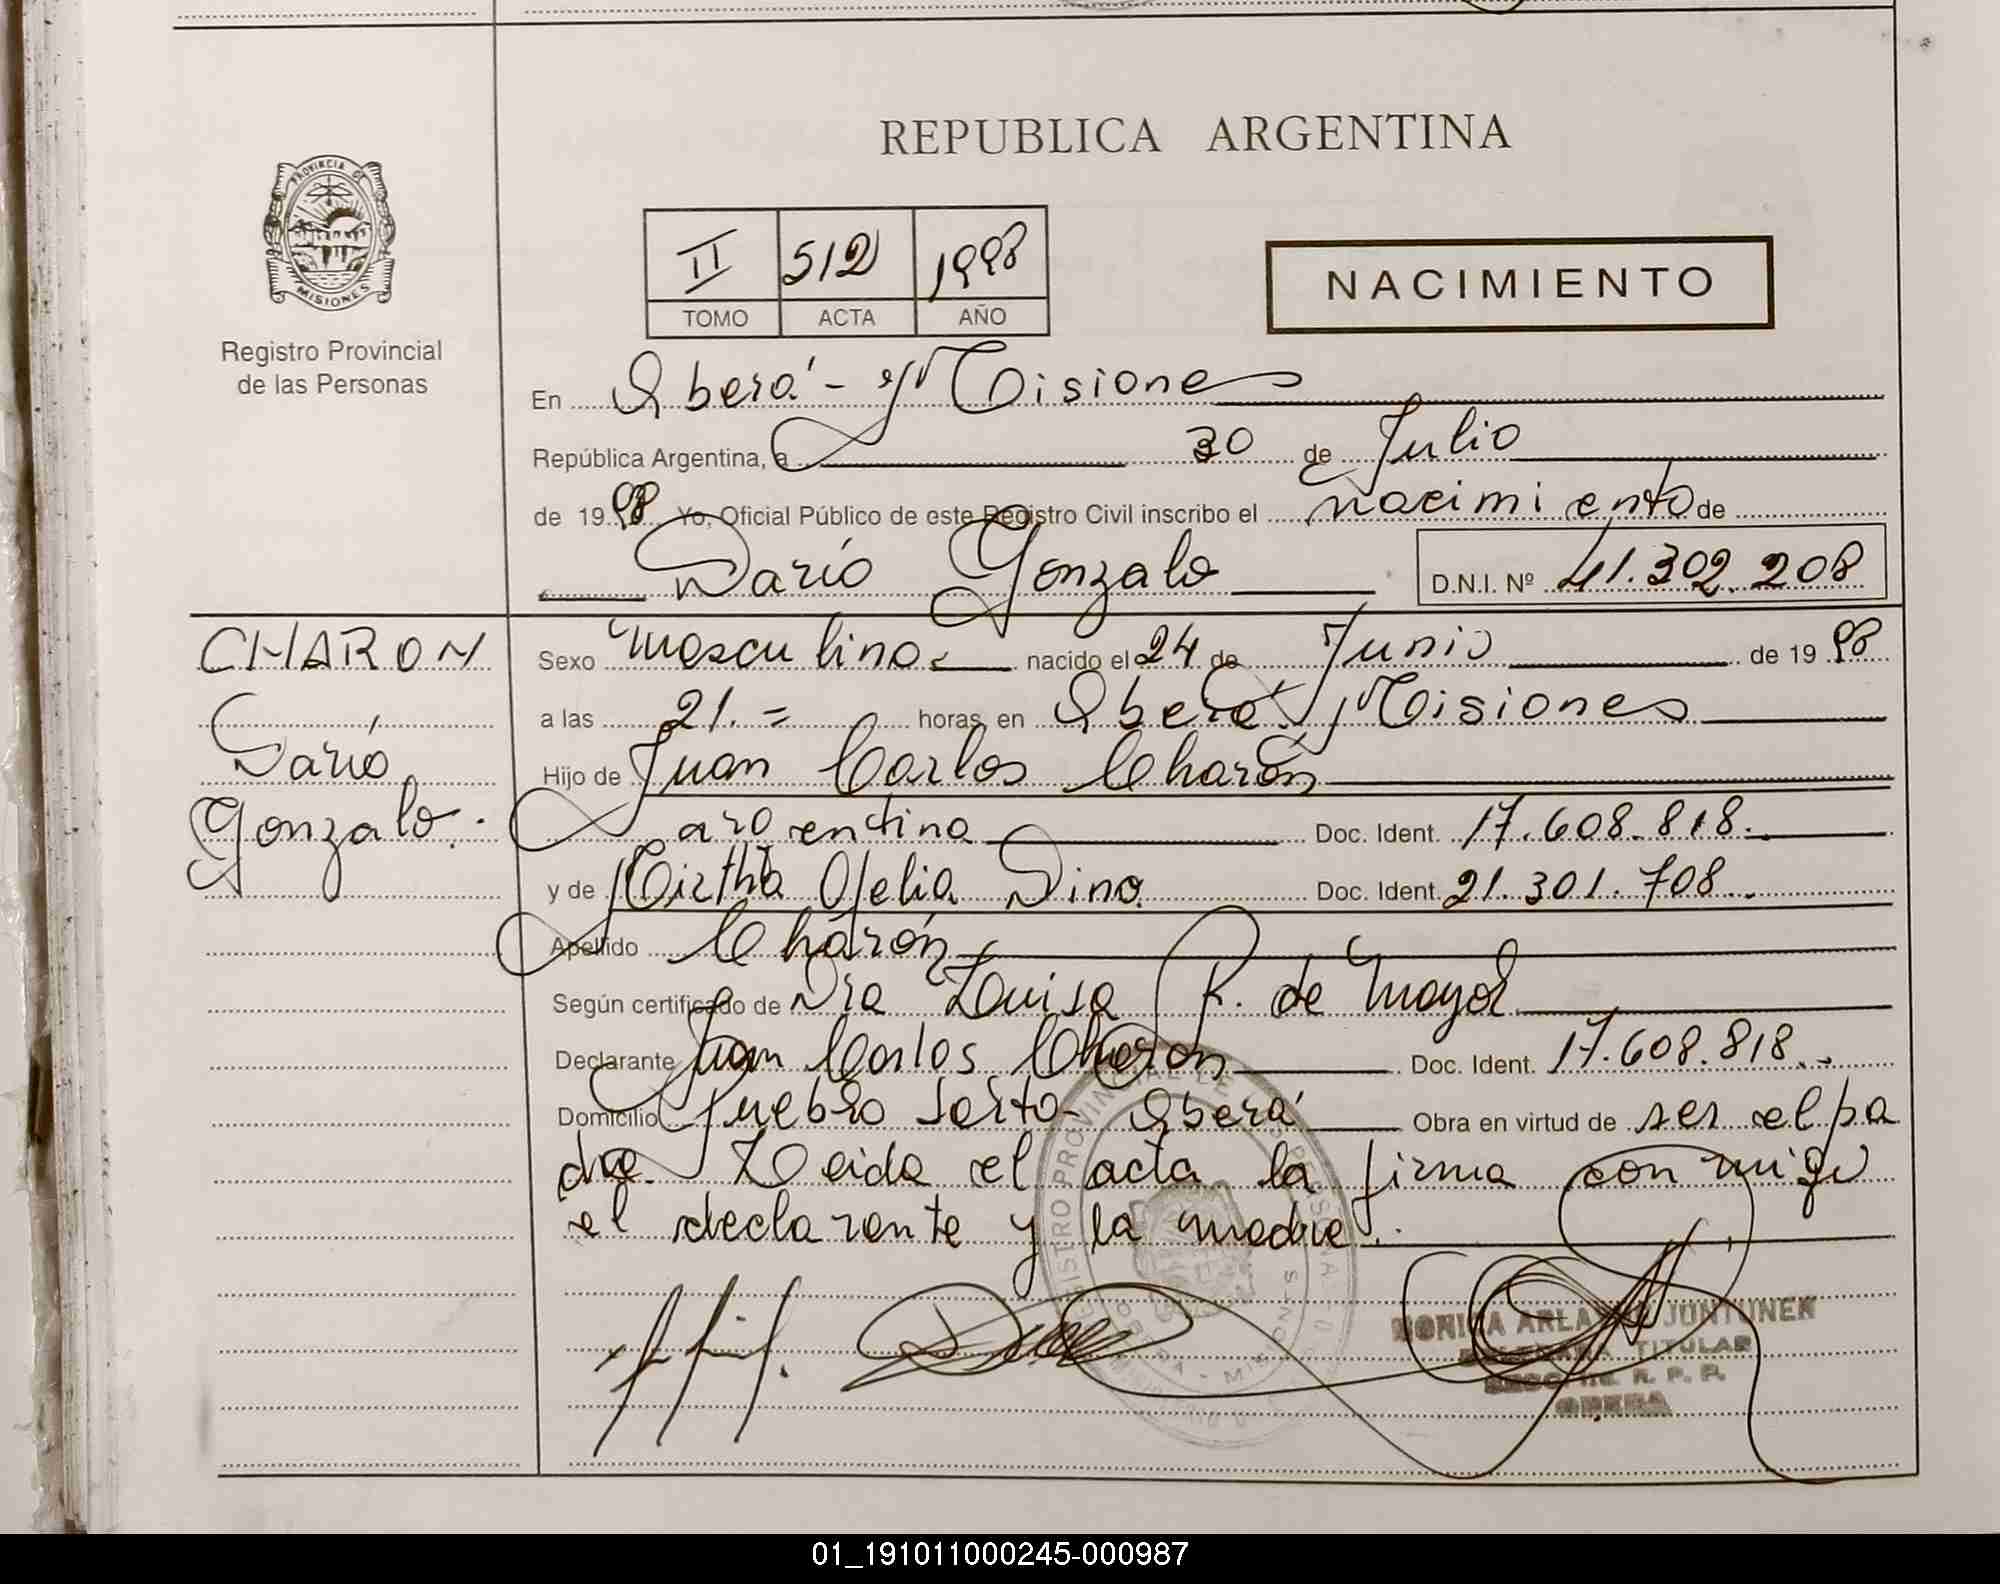 REPUBLICA ARGENTINA
PROVINCIA DE
MISIONES
Registro Provincial
de las Personas
II 512 1998
TOMO ACTA AÑO
NACIMIENTO
En Oberá - Misiones
República Argentina, a 30 de Julio
de 1998 Yo, Oficial Público de este Registro Civil inscribo el nacimiento de
Darío Gonzalo D.N.I. Nº 41.302.208
CHARON
Darío
Gonzalo.
Sexo masculino. nacido el 24 de Junio de 1998
a las 21.= horas, en Oberá. Misiones
Hijo de Juan Carlos Charón
argentino Doc. Ident. 17.608.818.
y de Mirtha Ofelia Dino. Doc. Ident. 21.301.708.
Apellido Charón
Según certificado de Dra Luisa R. de Mayol
Declarante Juan Carlos Charón Doc. Ident. 17.608.818.
Domicilio Puebro Oberá Obra en virtud de ser el pa
dre. Leida el acta la firma con migo
el declarante y la madre.
REGISTRO PROVINCIAL DE LAS PERSONAS
OBERA - MISIONES
JUNTUNEN
TITULAR
R. P. P.
OBERA
01_191011000245-000987